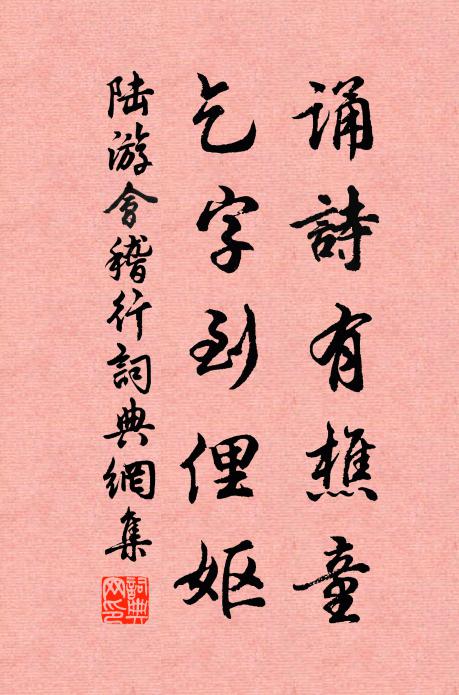 誦詩有樵童
乞字到俚嫗
陸游會稽行詞典網集
詞典網印